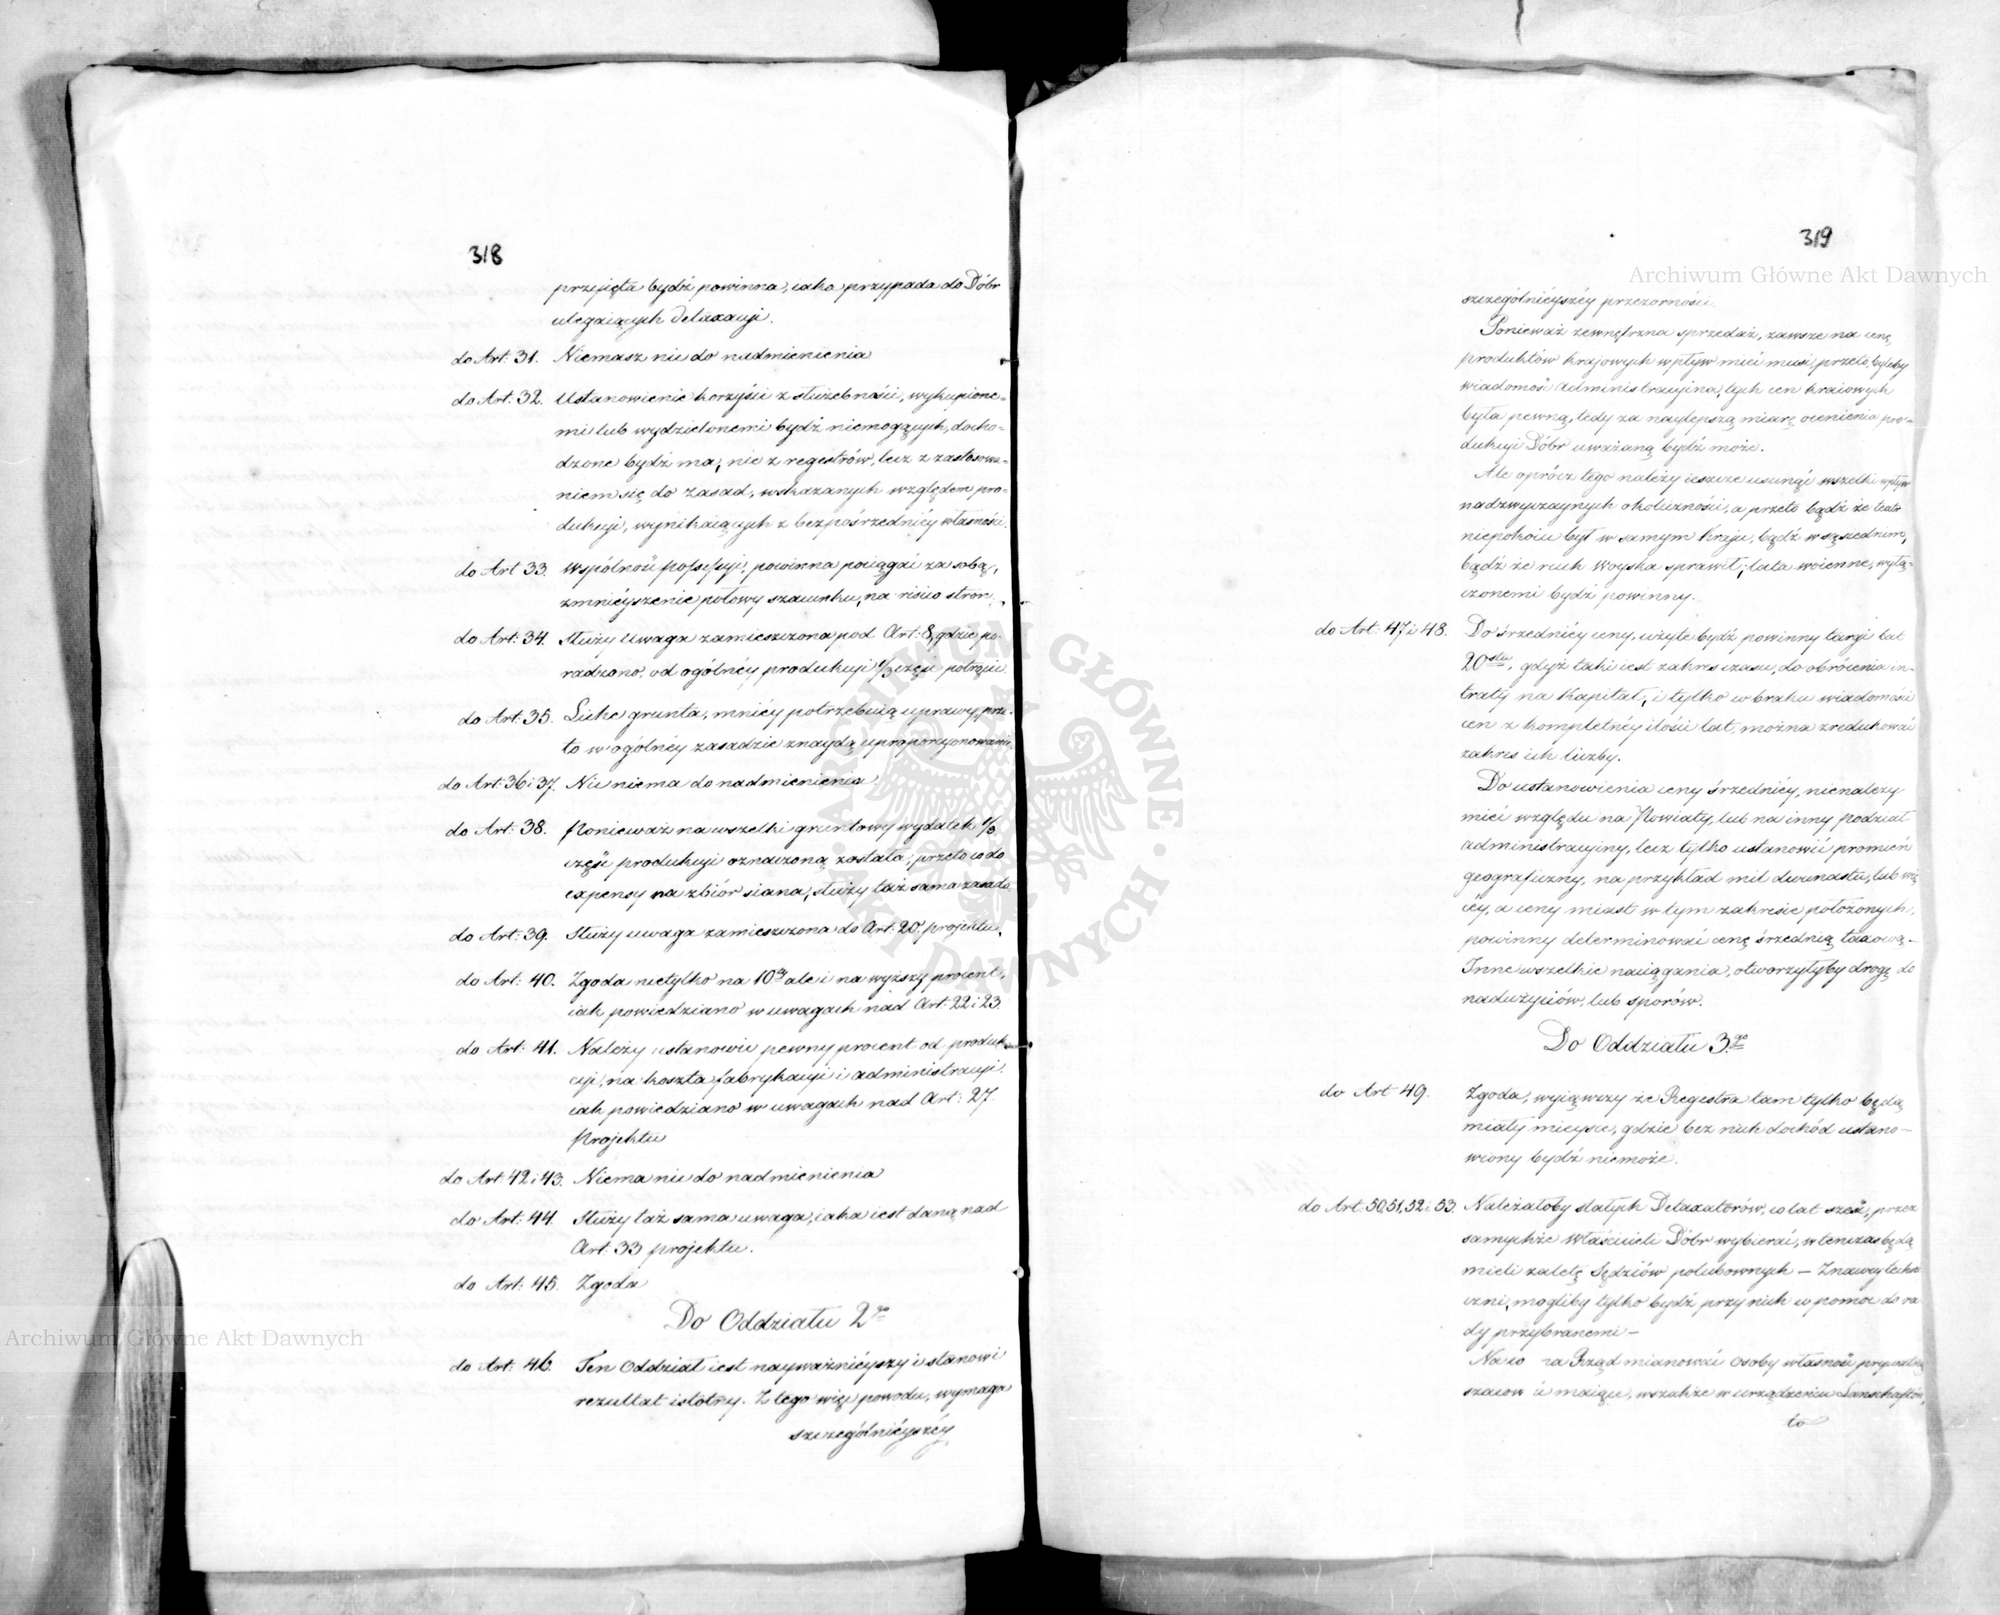 318
przyjęta bydź powinna, iaka przypada do Dóbr
ulegaiących Detaxacyi.
do Art: 31. Niemasz nic do nadmienienia
do Art: 32. Ustanowienie korzyści z służebności, wykupione-
mi lub wydzielonemi bydź niemogących, docho-
dzone bydź ma, nie z regestrów, lecz z zastosowa-
niem się do zasad, wskazanych względem pro-
dukcyi, wynikaiących z bezpośrzedniéy własności.
do Art 33. Wspólność possessyi, powinna pociągać za sobą,
zmniéyszenie połowy szacunku, na risico stron.
do Art: 34. Służy uwaga zamieszczona pod Art: 8, gdzie po-
radzono, od ogólnéy produkcyi 1/3 część potrącić.
do Art: 35. Liche grunta, mniéy potrzebuią uprawy, prze-
to w ogólnéy zasadzie znaydą uproporcyonowanie.
do Art: 36 i 37. Nic niema do nadmienienia.
do Art: 38. Ponieważ na wszelki gruntowy wydatek 1/3
część produkcyi oznaczoną została; przeto co do
expensy na zbiór siana, służy taż sama zasada.
do Art: 39. Służy uwaga zamieszczona do Art: 20 projektu.
do Art: 40. Zgoda nietylko na 10ty ale i na wyższy procent,
iak powiedziano w uwagach nad Art: 22 i 23.
do Art: 41. Należy ustanowić pewny procent od produk-
cyi, na koszta fabrykacyi i administracyi,
iak powiedziano w uwagach nad Art: 27.
Projektu
do Art: 42 i 43. Niema nic do nadmienienia
do Art: 44. Służy taż sama uwaga, iaka iest daną nad
Art: 33 projektu.
do Art: 45. Zgoda
Do Oddziału 2go
do Art: 46. Ten Oddział iest nayważniéyszy i stanowi
rezultat istotny. Z tego więc powodu, wymaga
szczególniéyszéy
319
szczególniéyszéy przezorności.
Ponieważ zewnętrzna sprzedaż, zawsze na cenę
produktów krajowych wpływ mieć musi, przeto, byleby
wiadomość administracyina, tych cen kraiowych
była pewną, tedy za naylepszą miarę ocenienia pro-
dukcyi Dóbr uważaną bydź może.
Ale oprócz tego należy ieszcze usunąć wszelki wpływ
nadzwyczaynych okoliczności, a przeto bądź że teatr
niepokoiu był w samym kraju, bądź w sąsiednim,
bądź że ruch woyska sprawił; lata woienne, wyłą-
czonemi bydź powinny.
do Art: 47 i 48. Do śrzedniéy ceny, użyte bydź powinny targi lat
20stu, gdyż taki iest zakres czasu, do obrócenia in-
traty na kapitał, i tylko w braku wiadomości
cen z kompletnéy ilości lat, można zredukować
zakres ich liczby.
Do ustanowienia ceny śrzedniéy, nienależy
mieć względu na Powiaty, lub na inny podział
administracyiny, lecz tylko ustanowić promień
geograficzny, na przykład mil dwunastu, lub wię
céy, a ceny miast w tym zakresie położonych,
powinny determinować cenę śrzednią taxową.-
Inne wszelkie naciągania, otworzyłyby drogę do
nadużyciów, lub sporów.
Do Oddziału 3go
do Art 49. Zgoda, wyiąwszy że Regestra tam tylko będą
miały mieysce, gdzie bez nich dochód ustano-
wiony bydź niemoże.
do Art: 50, 51, 52 i 53. Należałoby stałych Detaxatorów, co lat sześć, przez
samychże Właścicieli Dóbr wybierać, w tenczas będą
mieli zaletę Sędziów polubownych — Znawcy techni
czni, mogliby tylko bydź przy nich w pomoc do ra
dy przybranemi —
Na co Rząd mianować osoby własność prywatną
szacować maiące, wszakże w urządzeniu Lanszaftów,
to
Archiwum Główne Akt Dawnych
Archiwum Główne Akt Dawnych
ARCHIWUM GŁÓWNE AKT DAWNYCH